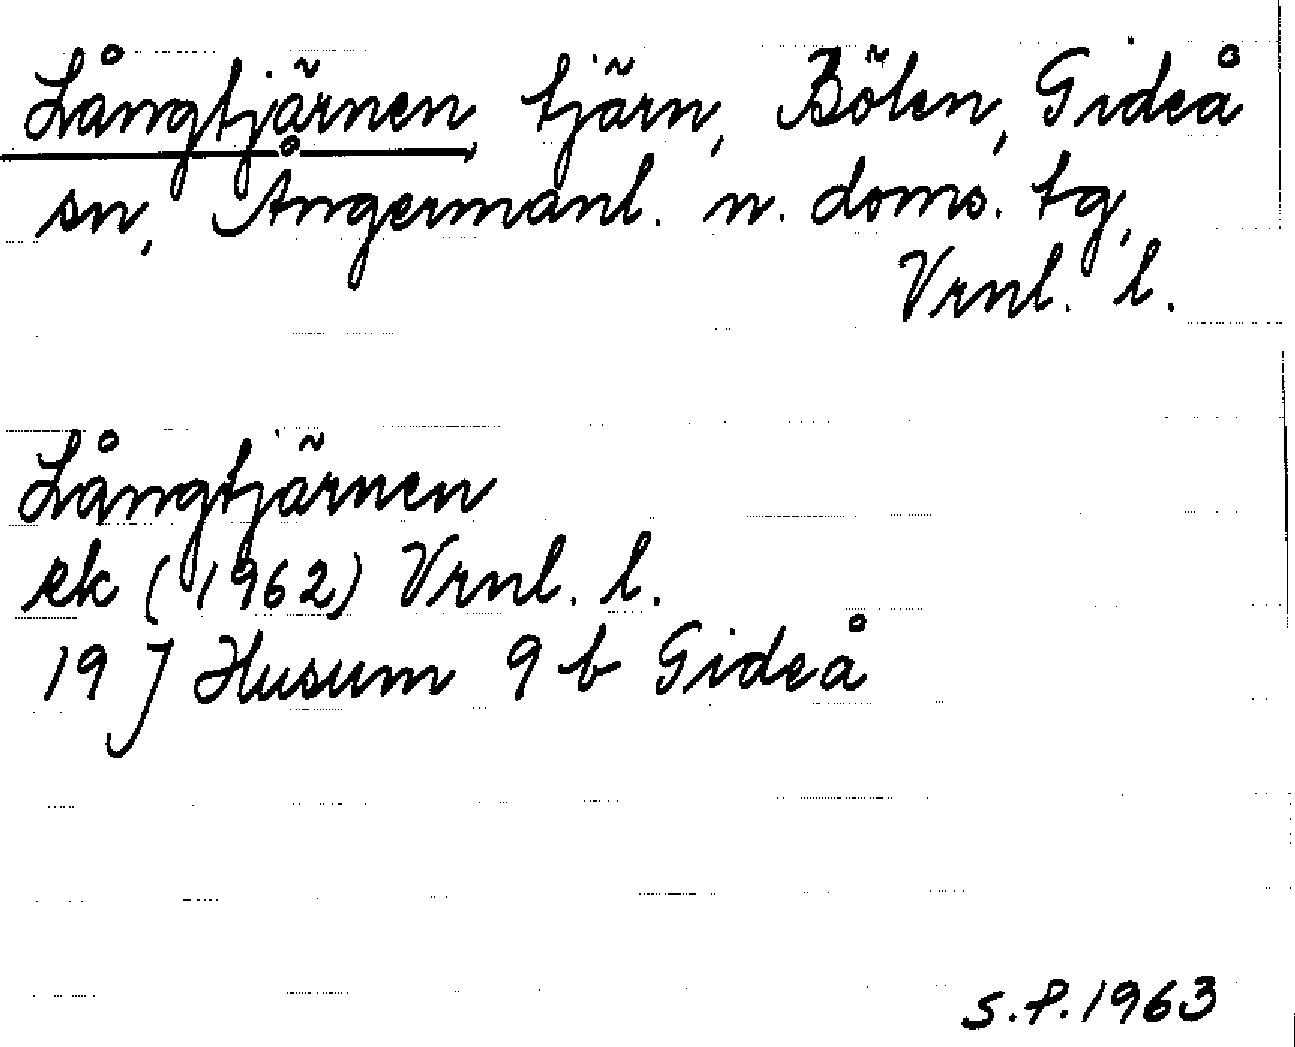 Långtjärnen, tjärn, Bölen, Gideå
sn, Ångermanl. n. doms. tg,
Vrnl. l.
Långtjärnen
ek (1962) Vrnl. l.
19 J Husum 9 b Gideå
S.P. 1963